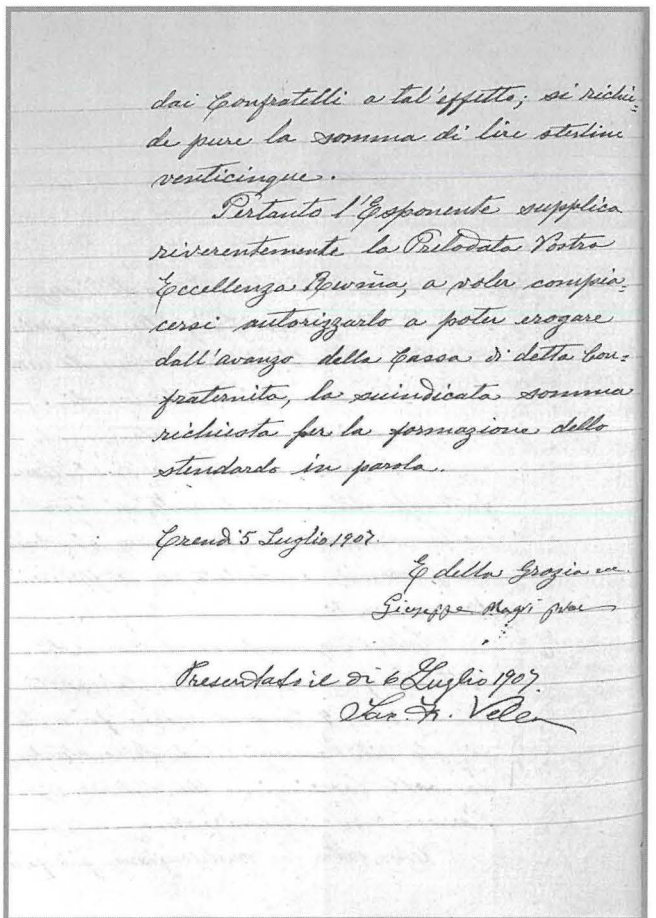 dai Confratelli a tal'effetto; si richie=
de pure la somma di lire sterline
venticinque.
Pertanto l'Esponente supplica
riverentemente la Prelodata Vostra
Eccellenza Rev̄ma, a voler compia=
cersi autorizzarlo a poter erogare
dall'avanzo della Cassa di detta Con=
fraternita, la suindicata somma
richiesta per la formazione dello
stendardo in parola.
Crendi 5 Luglio 1907.
E della Grazia
Giuseppe Magri
Presentato il dì 6 Luglio 1907.